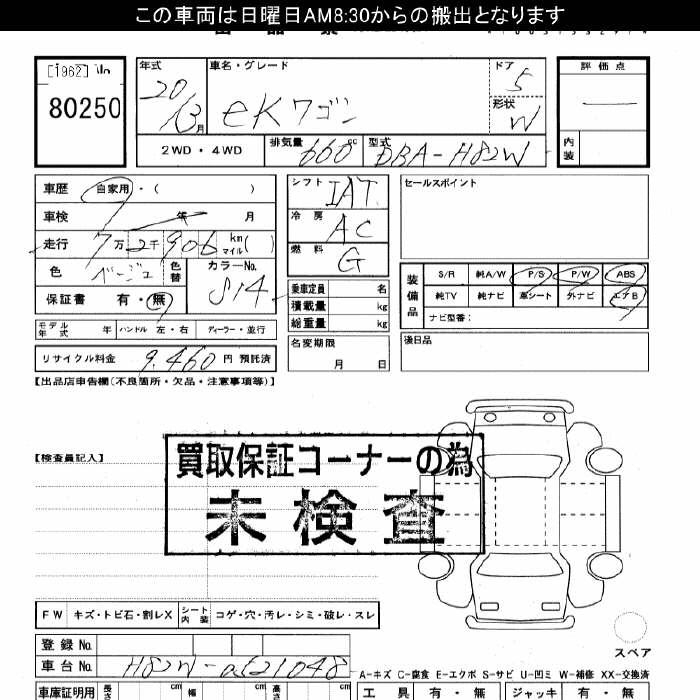 この車両は日曜日AM8:30からの搬出となります
[1962]
80250
年式
20
13月
車名・グレード
eKワゴン
ドア
5
形状
W
評価点
内装
2WD・4WD
排気量 660cc
型式 DBA-H82W
車歴 自家用・( )
車検 年 月
走行 7万2千906 kmマイル( )
色 ベージュ
色替
カラーNo. S14
保証書 有・無
モデル年式 年 ハンドル 左・右 ディーラー・並行
リサイクル料金 9,460 円 預託済
シフト IAT
冷房 AC
燃料 G
乗車定員 名
積載量 kg
総重量 kg
名変期限
月 日
セールスポイント
装備品
S/R 純A/W P/S P/W ABS
純TV 純ナビ 革シート 外ナビ エアB
ナビ型番:
後日品
【出品店申告欄(不良箇所・欠品・注意事項等)】
【検査員記入】
買取保証コーナーの為
未検査
FW キズ・トビ石・割レX シート内装 コゲ・穴・汚レ・シミ・破レ・スレ
スペア
登録No.
車台No. H82W-
A-キズ C-腐食 E-エクボ S-サビ U-凹ミ W-補修 XX-交換済
車庫証明用 長さ cm 幅 cm 高さ cm
工具 有・無 ジャッキ 有・無